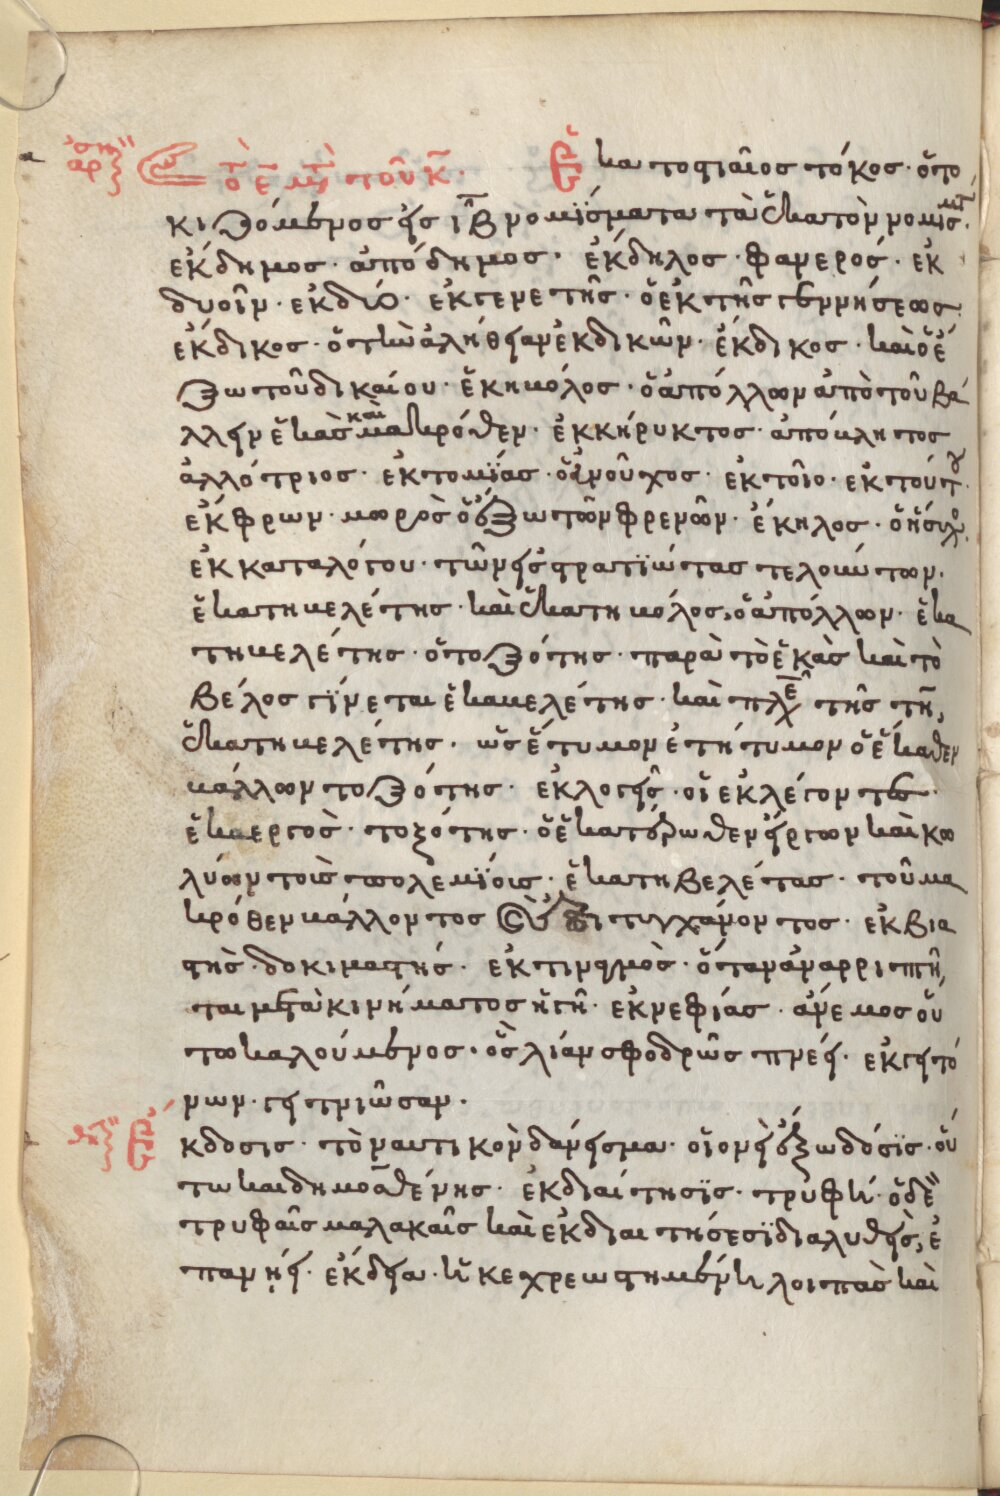 τὸ ε̅ με̅τ̀ τοῦ κ̅. Ἑκατοστιαῖος τόκος· ὁ το
κιζόμενος εἰς ι̅β νομίσματα τὰ ἑκατὸν νομίσμτ.
ἐκδημος· ἀπόδημος· ἐκδηλος· φανερός· ἐκ
δυοῖν· ἐκ δύο· ἐκ γενετῆς· ὁ ἐκ τῆς γεννήσεως
ἐκδικος· ὁ τὴν ἀλήθειαν ἐκδικῶν· ἐκδικος· καὶ ὁ ἐ
ξω τοῦ δικαίου· ἑκηκόλος· ὁ ἀπόλλων ἀπὸ τοῦ βά
λλειν ἑκὰς καὶ μακρόθεν· ἐκκήρυκτος· ἀπόκλητος
ἀλλότριος· ἐκτομΐας· ὁ εὐνοῦχος· ἐκ τοῖο· ἐκ τούτου
ἐκφρων· μωρὸς ὁ ἐξω τῶν φρενῶν· ἐκηλος· ὁ ἥσυχος
ἐκ καταλόγου· τῶν εἰς στρατϊώτας τελούντων.
ἑκατηκελέτης· καὶ ἑκατηκόλος, ὁ ἀπόλλων· ἑκα
τηκελέτης· ὁ τοξότης· παρὰ τὸ ἑκὰς καὶ τὸ
βέλος γΐνεται ἑκακελέτης· καὶ πλε τῆς τη̅,
ἑκατηκελέτης· ὡς ἔτυμον ἐτήτυμον ὁ ἑκαθεν
κάλλων τοξότης· ἐκλογεῖς· οἱ ἐκλέγοντες.
ἑκαεργος· τοξότης· ὁ ἑκατέρωθεν είργων καὶ κω
λύων τοῖς πολεμΐοις· ἑκατηβελέτας· τοῦ μα
κρόθεν κάλλοντος ἐπιτυγχάνοντος· ἐκβια
στής· δοκιμαστής· ἐκτιναγμὸς· ὁταν ἀναρριπτῆ,
ται μετὰ κινήματος ἡ γῆ· ἐκνεφίας· άνεμος ού
τω καλούμενος· ὃς λίαν σφοδρῶς πνέει· ἐκ γειτό
νων· γειτνιῶσαν.
Ἔκδοσις· τὸ ναυτικὸν δάνεισμα· οἱονεὶ ἐξω δόσις· ού
τω και δημοσθένης· ἐκδιαίτησϊς· τρυφὴ· ὁ δὲ
τρυφαῖς μαλακαῖς καὶ ἐκδιαιτήσεσϊ διαλυθείς, ἐ
πανῄει· ἐκδεια· ἡ κεχρεωστημένη λοιπὰς καὶ